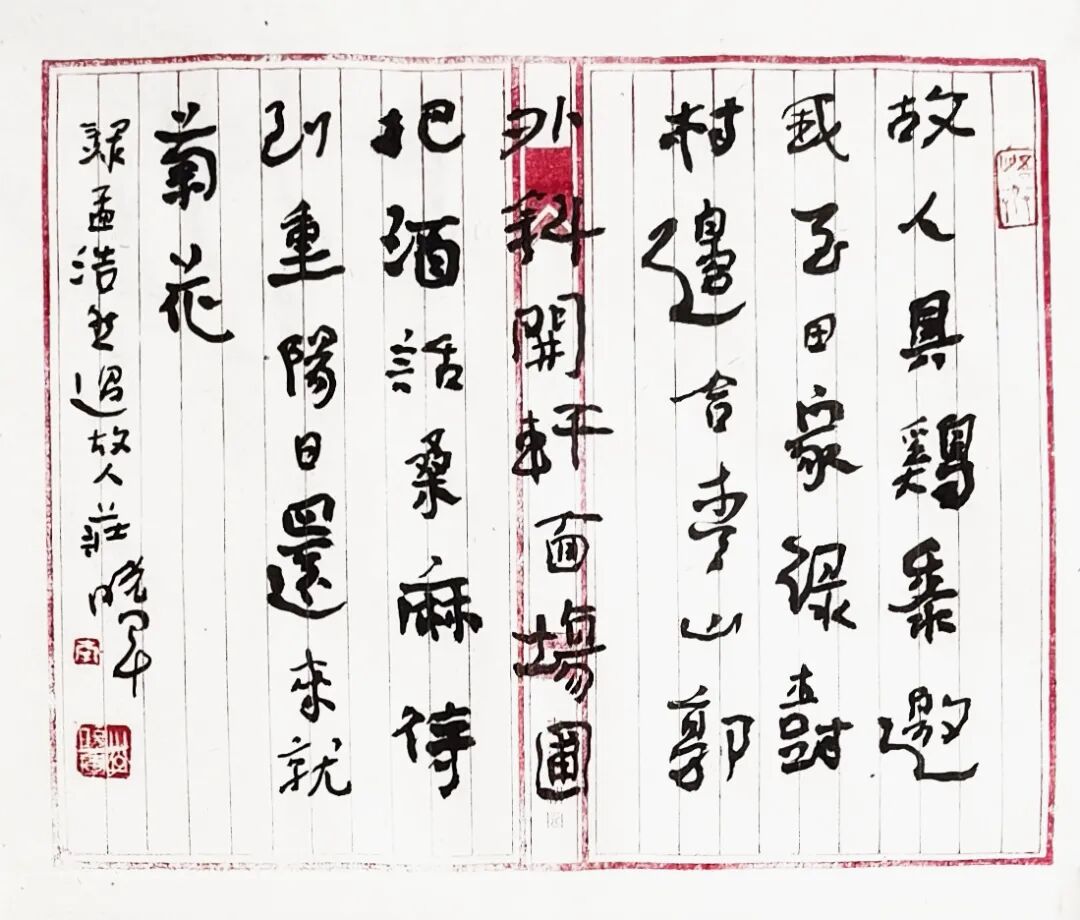 故人具鷄黍邀
我至田家緑樹
村邊合青山郭
外斜開軒面場圃
把酒話桑麻待
到重陽日還來就
菊花
録孟浩然過故人莊 曉軍